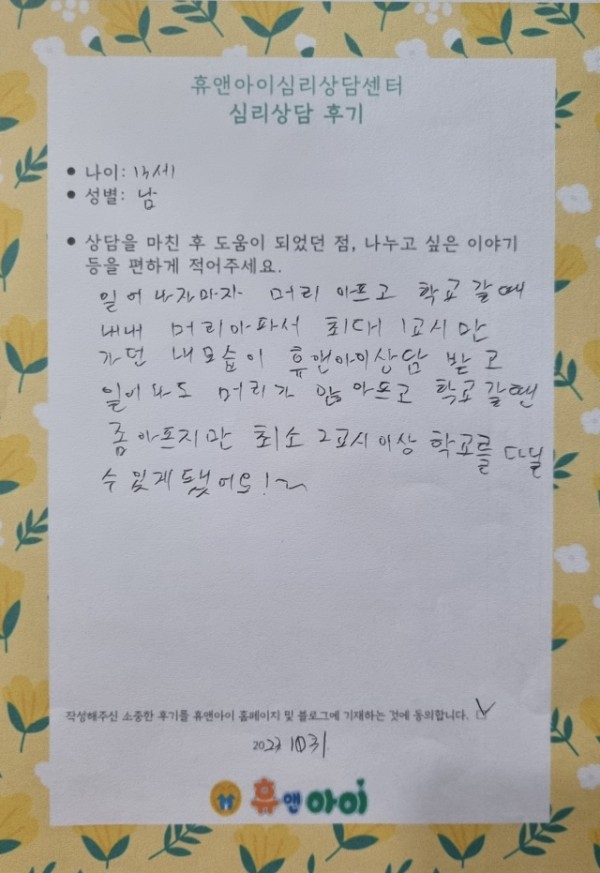 휴앤아이심리상담센터
심리상담 후기
• 나이: 13세
• 성별: 남
• 상담을 마친 후 도움이 되었던 점, 나누고 싶은 이야기
등을 편하게 적어주세요.
일어나자마자 머리 아프고 학교갈때
내내 머리아파서 최대 1교시만
가던 내모습이 휴앤아이상담 받고
일어나도 머리가 안아프고 학교갈땐
좀아프지만 최소 2교시이상 학교를 다닐
수 있게 됐어요!~
작성해주신 소중한 후기를 휴앤아이 홈페이지 및 블로그에 기재하는 것에 동의합니다. ☑
2023 10 31.
휴앤아이